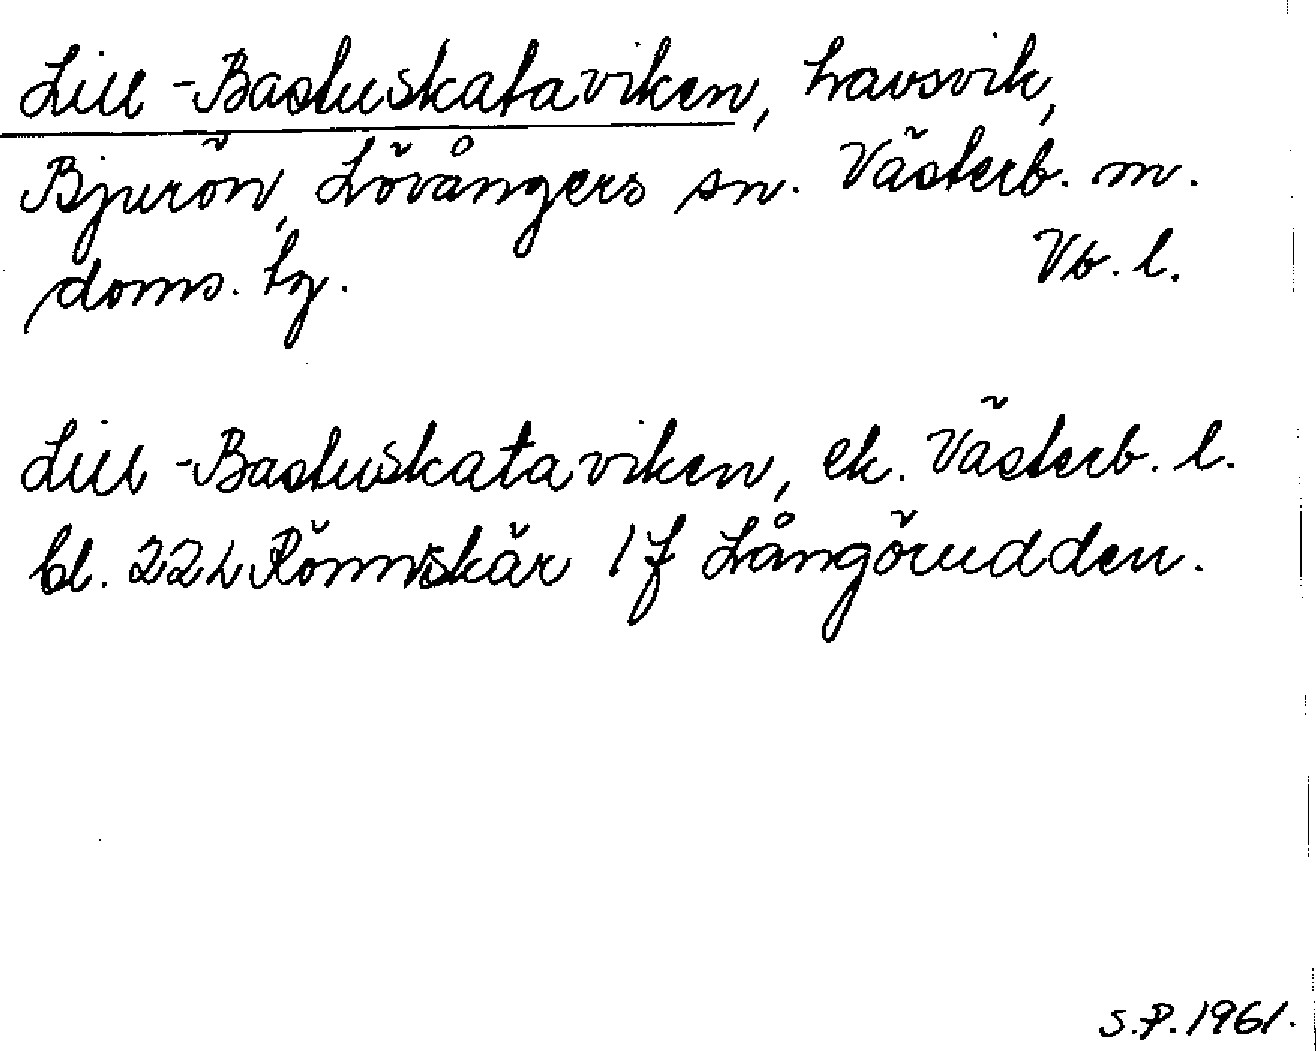 Lill-Bastuskataviken, havsvik,
Bjurön, Lövångers sn. Västerb. m.
doms. hg. Vb. l.
Lill-Bastuskataviken, ek. Västerb. l.
bl. 22L Rönnskär 1f Långörudden.
S.P. 1961.